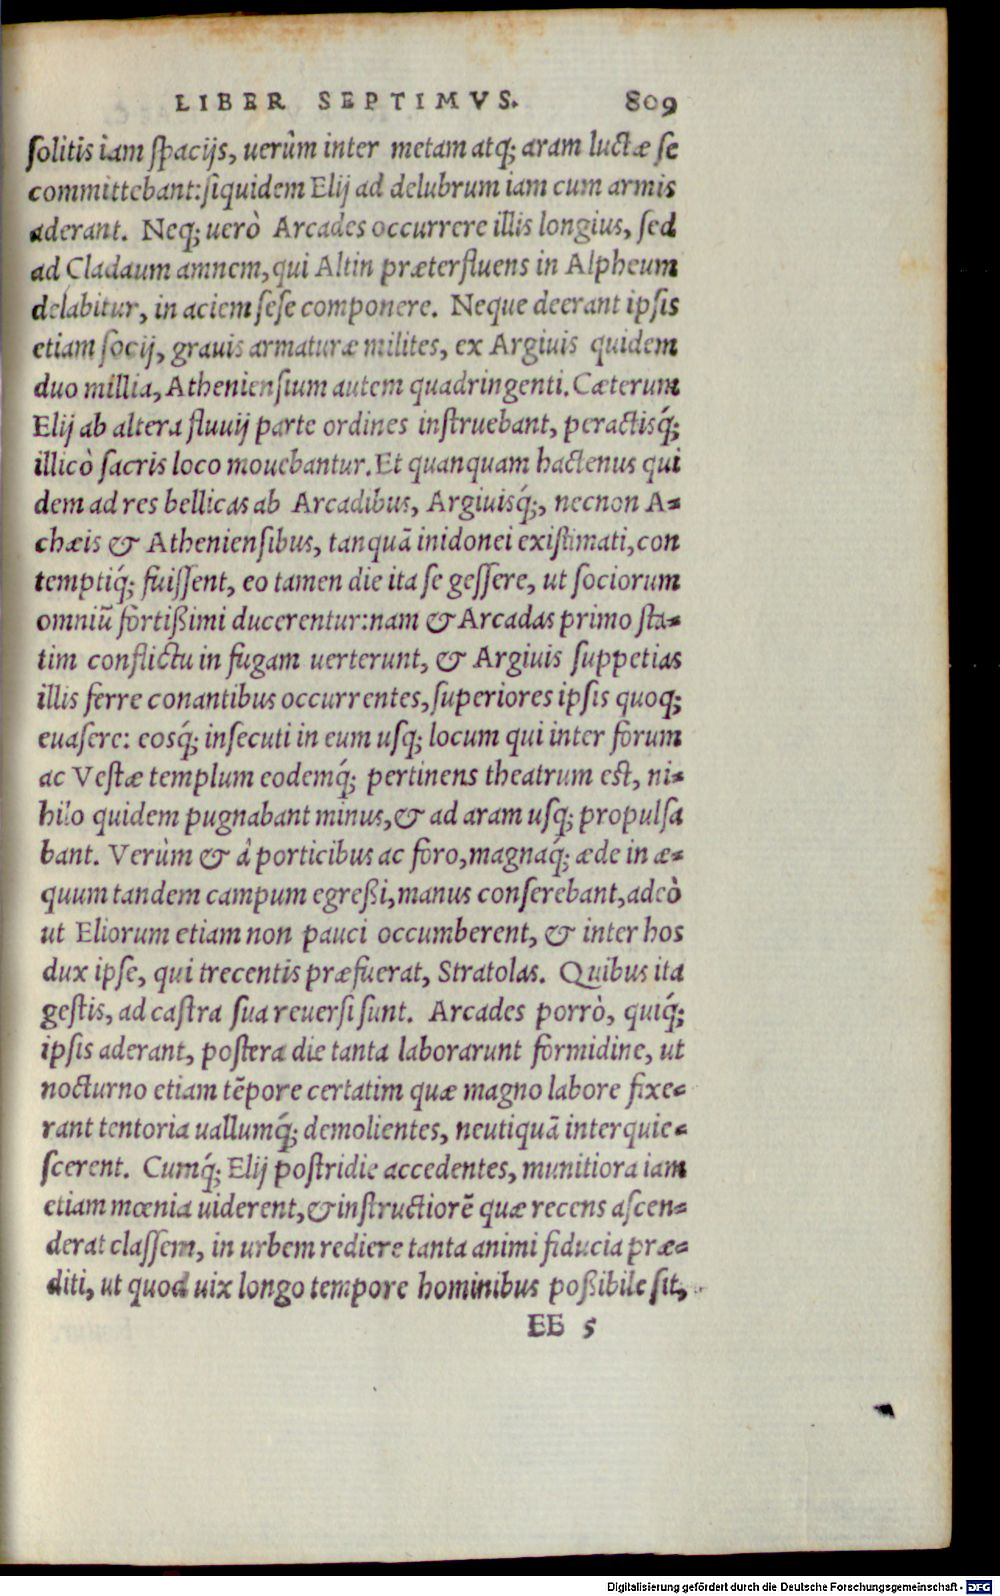 LIBER SEPTIMVS. 809
ſolitis iam ſpacijs, uerùm inter metam atq; aram luctæ ſe
committebant: ſiquidem Elij ad delubrum iam cum armis
aderant. Neq; uerò Arcades occurrere illis longius, ſed
ad Cladaum amnem, qui Altin præterfluens in Alpheum
delabitur, in aciem ſeſe componere. Neque deerant ipſis
etiam ſocij, grauis armaturæ milites, ex Argiuis quidem
duo millia, Athenienſium autem quadringenti. Cæterum
Elij ab altera fluuij parte ordines inſtruebant, peractisq́;
illicò ſacris loco mouebantur. Et quanquam hactenus qui
dem ad res bellicas ab Arcadibus, Argiuisq́;, necnon A-
chæis & Athenienſibus, tanquā inidonei exiſtimati, con
temptiq́; fuiſſent, eo tamen die ita ſe geſſere, ut ſociorum
omniū fortißimi ducerentur: nam & Arcadas primo ſta-
tim conflictu in fugam uerterunt, & Argiuis ſuppetias
illis ferre conantibus occurrentes, ſuperiores ipſis quoq;
euaſere: eosq́; inſecuti in eum uſq; locum qui inter forum
ac Veſtæ templum eodemq́; pertinens theatrum eſt, ni-
hilo quidem pugnabant minus, & ad aram uſq; propulſa
bant. Verùm & à porticibus ac foro, magnaq́; æde in æ-
quum tandem campum egreßi, manus conſerebant, adeò
ut Eliorum etiam non pauci occumberent, & inter hos
dux ipſe, qui trecentis præfuerat, Stratolas. Quibus ita
geſtis, ad caſtra ſua reuerſi ſunt. Arcades porrò, quiq́;
ipſis aderant, poſtera die tanta laborarunt formidine, ut
nocturno etiam tēpore certatim quæ magno labore fixe-
rant tentoria uallumq́; demolientes, neutiquā interquie-
ſcerent. Cumq́; Elij poſtridie accedentes, munitiora iam
etiam mœnia uiderent, & inſtructiorē quæ recens aſcen-
derat claſſem, in urbem rediere tanta animi fiducia præ-
diti, ut quod uix longo tempore hominibus poßibile ſit,
EE 5
Digitalisierung gefördert durch die Deutsche Forschungsgemeinschaft - DFG